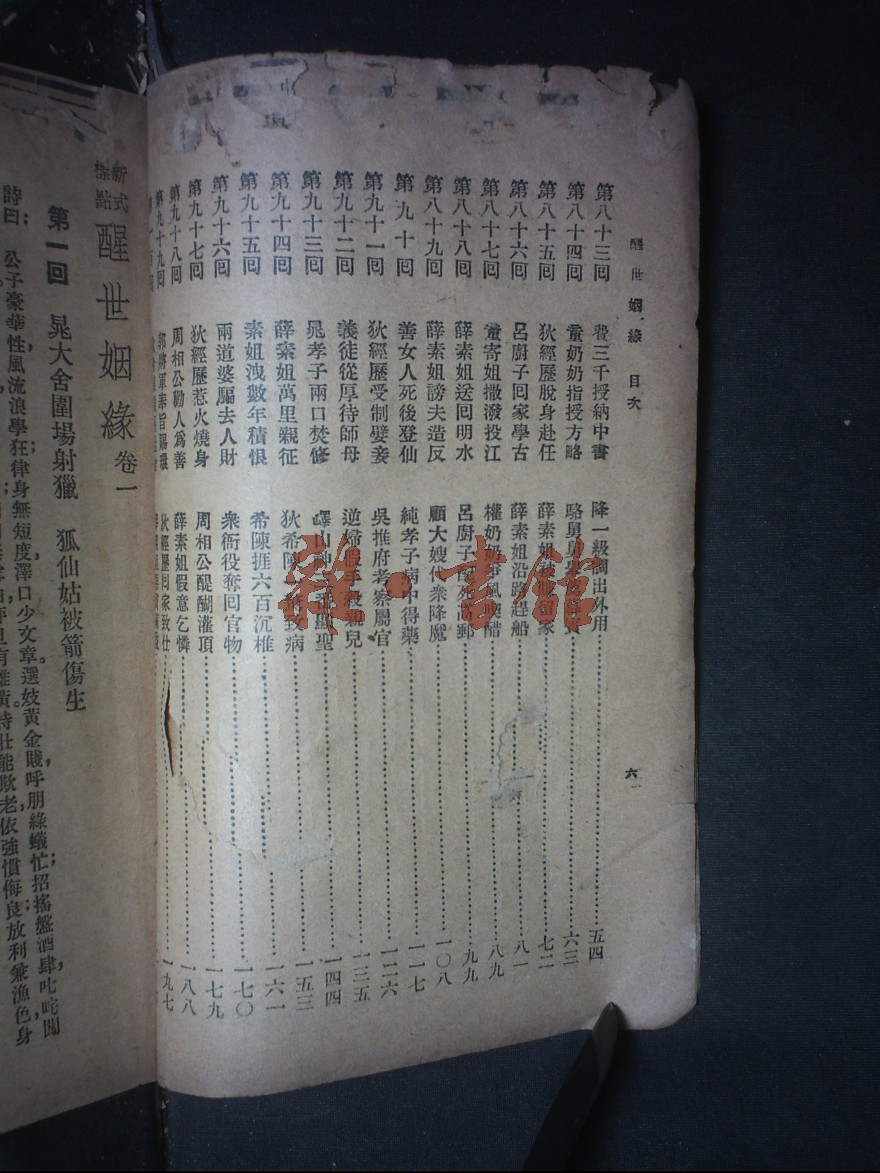 醒世姻緣 目次
六
第八十三回 費三千授納中書 降一級調出外用 五四
第八十四回 童奶奶指授方略 駱舅舅 六三
第八十五回 狄經歷脫身赴任 薛素姐 家 七二
第八十六回 呂廚子回家學舌 薛素姐沿路趕船 八一
第八十七回 童寄姐撒潑投江 權奶奶爭風 醋 八九
第八十八回 薛素姐送回明水 呂廚子 死高郵 九九
第八十九回 薛素姐謗夫造反 顧大嫂代衆降魔 一〇八
第九十回 善女人死後登仙 純孝子病中得藥 一一七
第九十一回 狄經歷受制嬖妾 吳推府考察屬官 一二六
第九十二回 義徒從厚待師母 逆婦假手殺親兒 一三五
第九十三回 晁孝子兩口焚修 嶧山神 顯聖 一四四
第九十四回 薛素姐萬里親征 狄希陳 致病 一五三
第九十五回 素姐洩數年積恨 希陳捱六百沉椎 一六一
第九十六回 兩道婆騙去人財 衆衙役奪回官物 一七〇
第九十七回 狄經歷惹火燒身 周相公醍醐灌頂 一七九
第九十八回 周相公勸人爲善 薛素姐假意乞憐 一八八
第九十九回 郭將軍奉旨賜環 狄經歷回家致仕 一九七
新式標點 醒世姻緣 卷一
第一回 晁大舍圍場射獵 狐仙姑被箭傷生
詩曰: 公子豪華性,風流浪學狂;律身無短度,澤口少文章。選妓黃金賤,呼朋綠蟻忙;招搖盤酒肆,叱咤鬧
能欺老,依強慣侮良;放利兼漁色,身
雜·書館